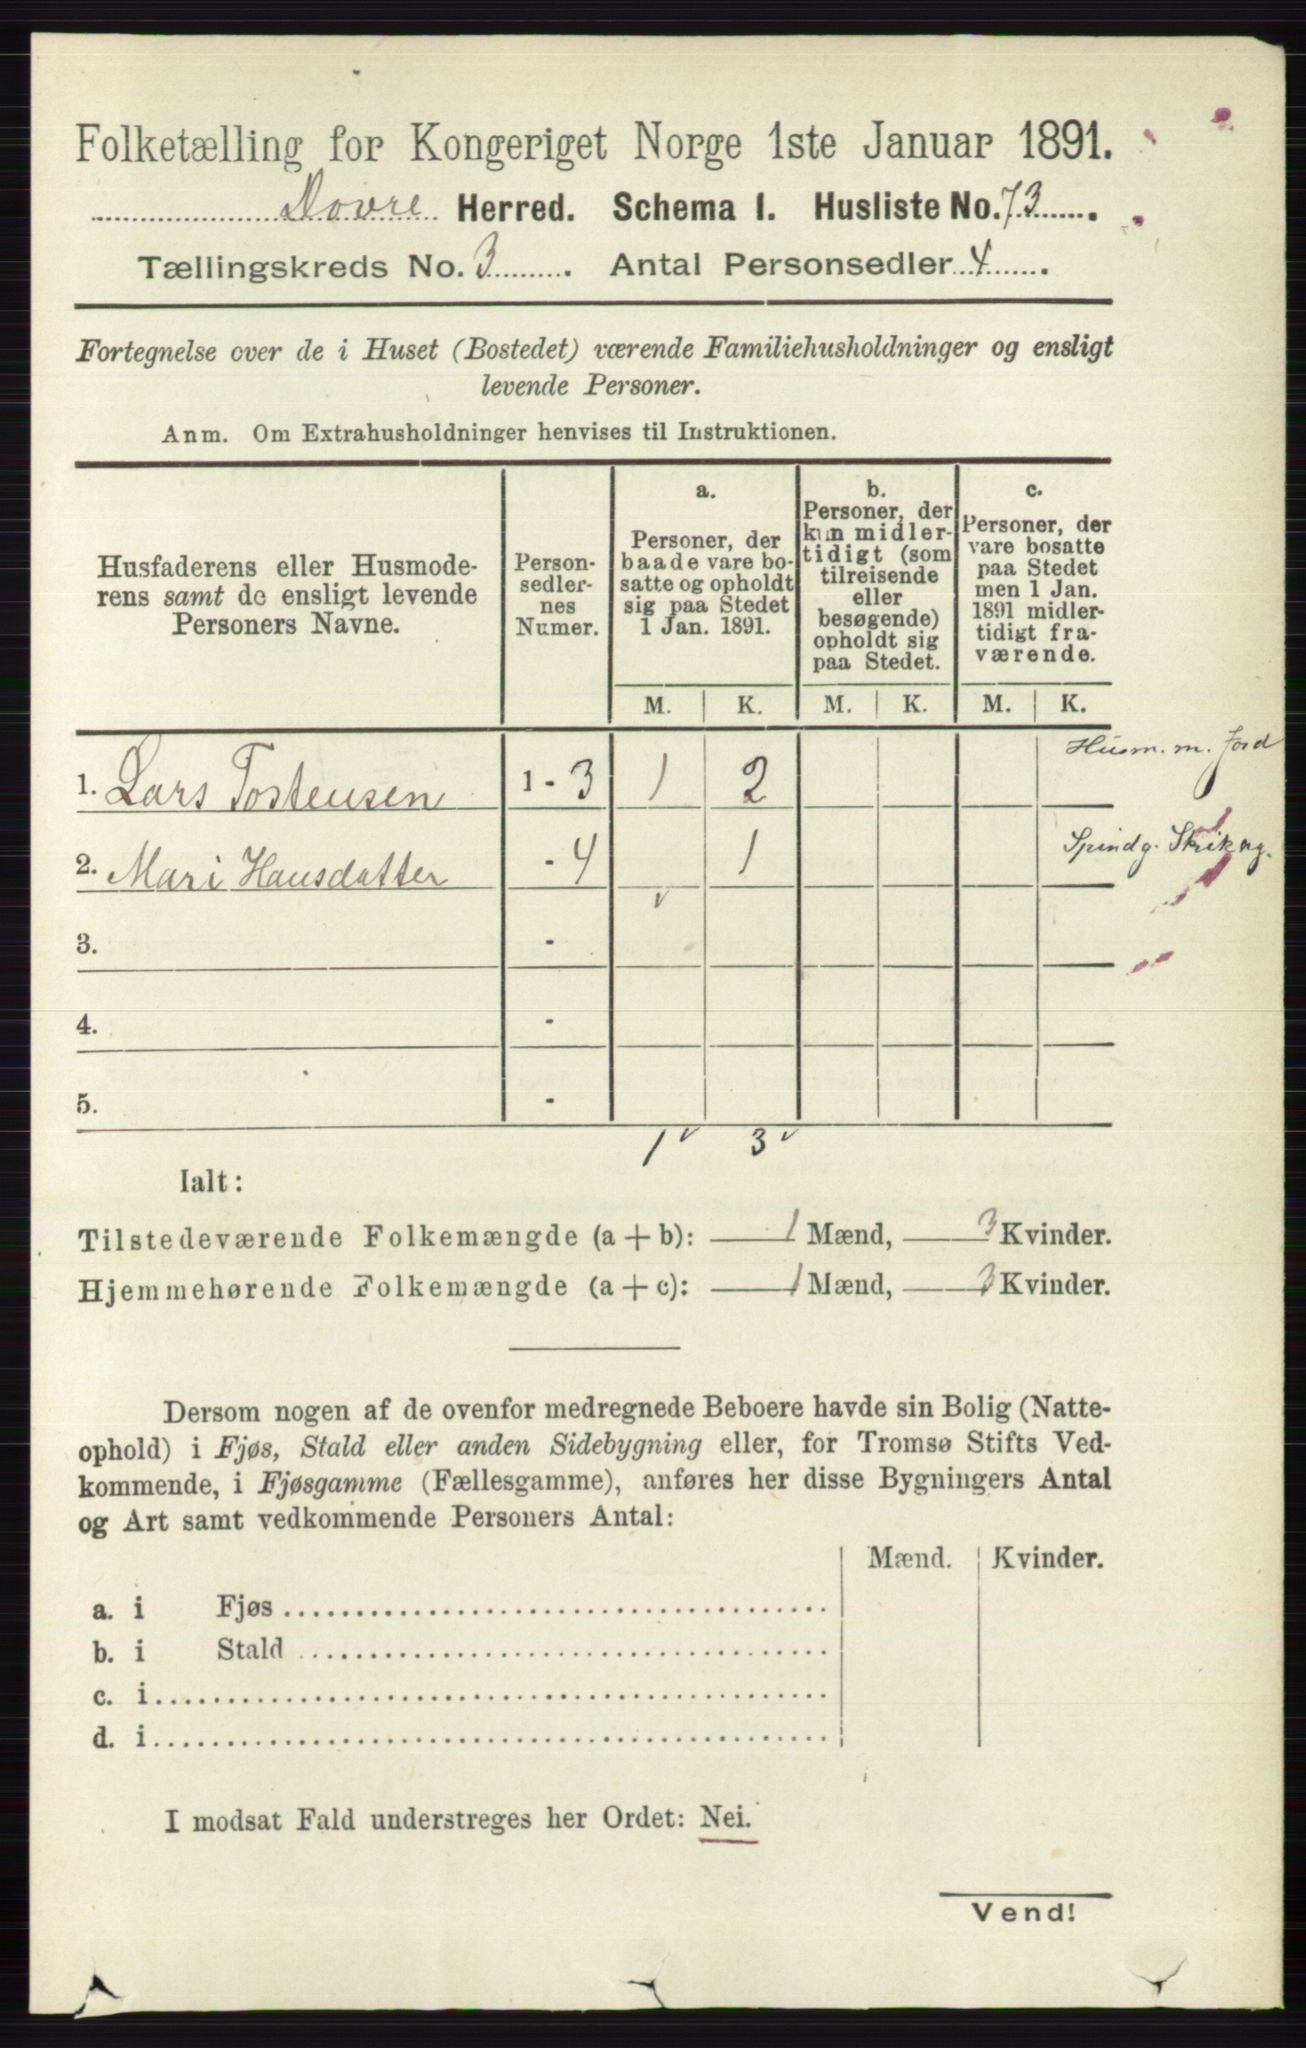 Folketælling for Kongeriget Norge 1ste Januar 1891.
Dovre Herred. Schema I. Husliste No. 73.
Tællingskreds No. 3. Antal Personsedler 4.
Fortegnelse over de i Huset (Bostedet) værende Familiehusholdninger og ensligt
levende Personer.
Anm. Om Extrahusholdninger henvises til Instruktionen.
Husfaderens eller Husmode-
rens samt de ensligt levende
Personers Navne.
Person-
sedler-
nes
Numer.
a.
Personer, der
baade vare bo-
satte og opholdt
sig paa Stedet
1 Jan. 1891.
b.
Personer, der
kun midler-
tidigt (som
tilreisende
eller
besøgende)
opholdt sig
paa Stedet.
c.
Personer, der
vare bosatte
paa Stedet
men 1 Jan.
1891 midler-
tidigt fra-
værende.
M. K. M. K. M. K.
1. Lars Tostensen 1 - 3 1 2 Husm. m. Jord
2. Mari Hansdatter - 4 1 Spindg. Strikng.
3. -
4. -
5. -
1 3
Ialt:
Tilstedeværende Folkemængde (a + b): 1 Mænd, 3 Kvinder.
Hjemmehørende Folkemængde (a + c): 1 Mænd, 3 Kvinder.
Dersom nogen af de ovenfor medregnede Beboere havde sin Bolig (Natte-
ophold) i Fjøs, Stald eller anden Sidebygning eller, for Tromsø Stifts Ved-
kommende, i Fjøsgamme (Fællesgamme), anføres her disse Bygningers Antal
og Art samt vedkommende Personers Antal:
Mænd. Kvinder.
a. i Fjøs
b. i Stald
c. i
d. i
I modsat Fald understreges her Ordet: Nei.
Vend!